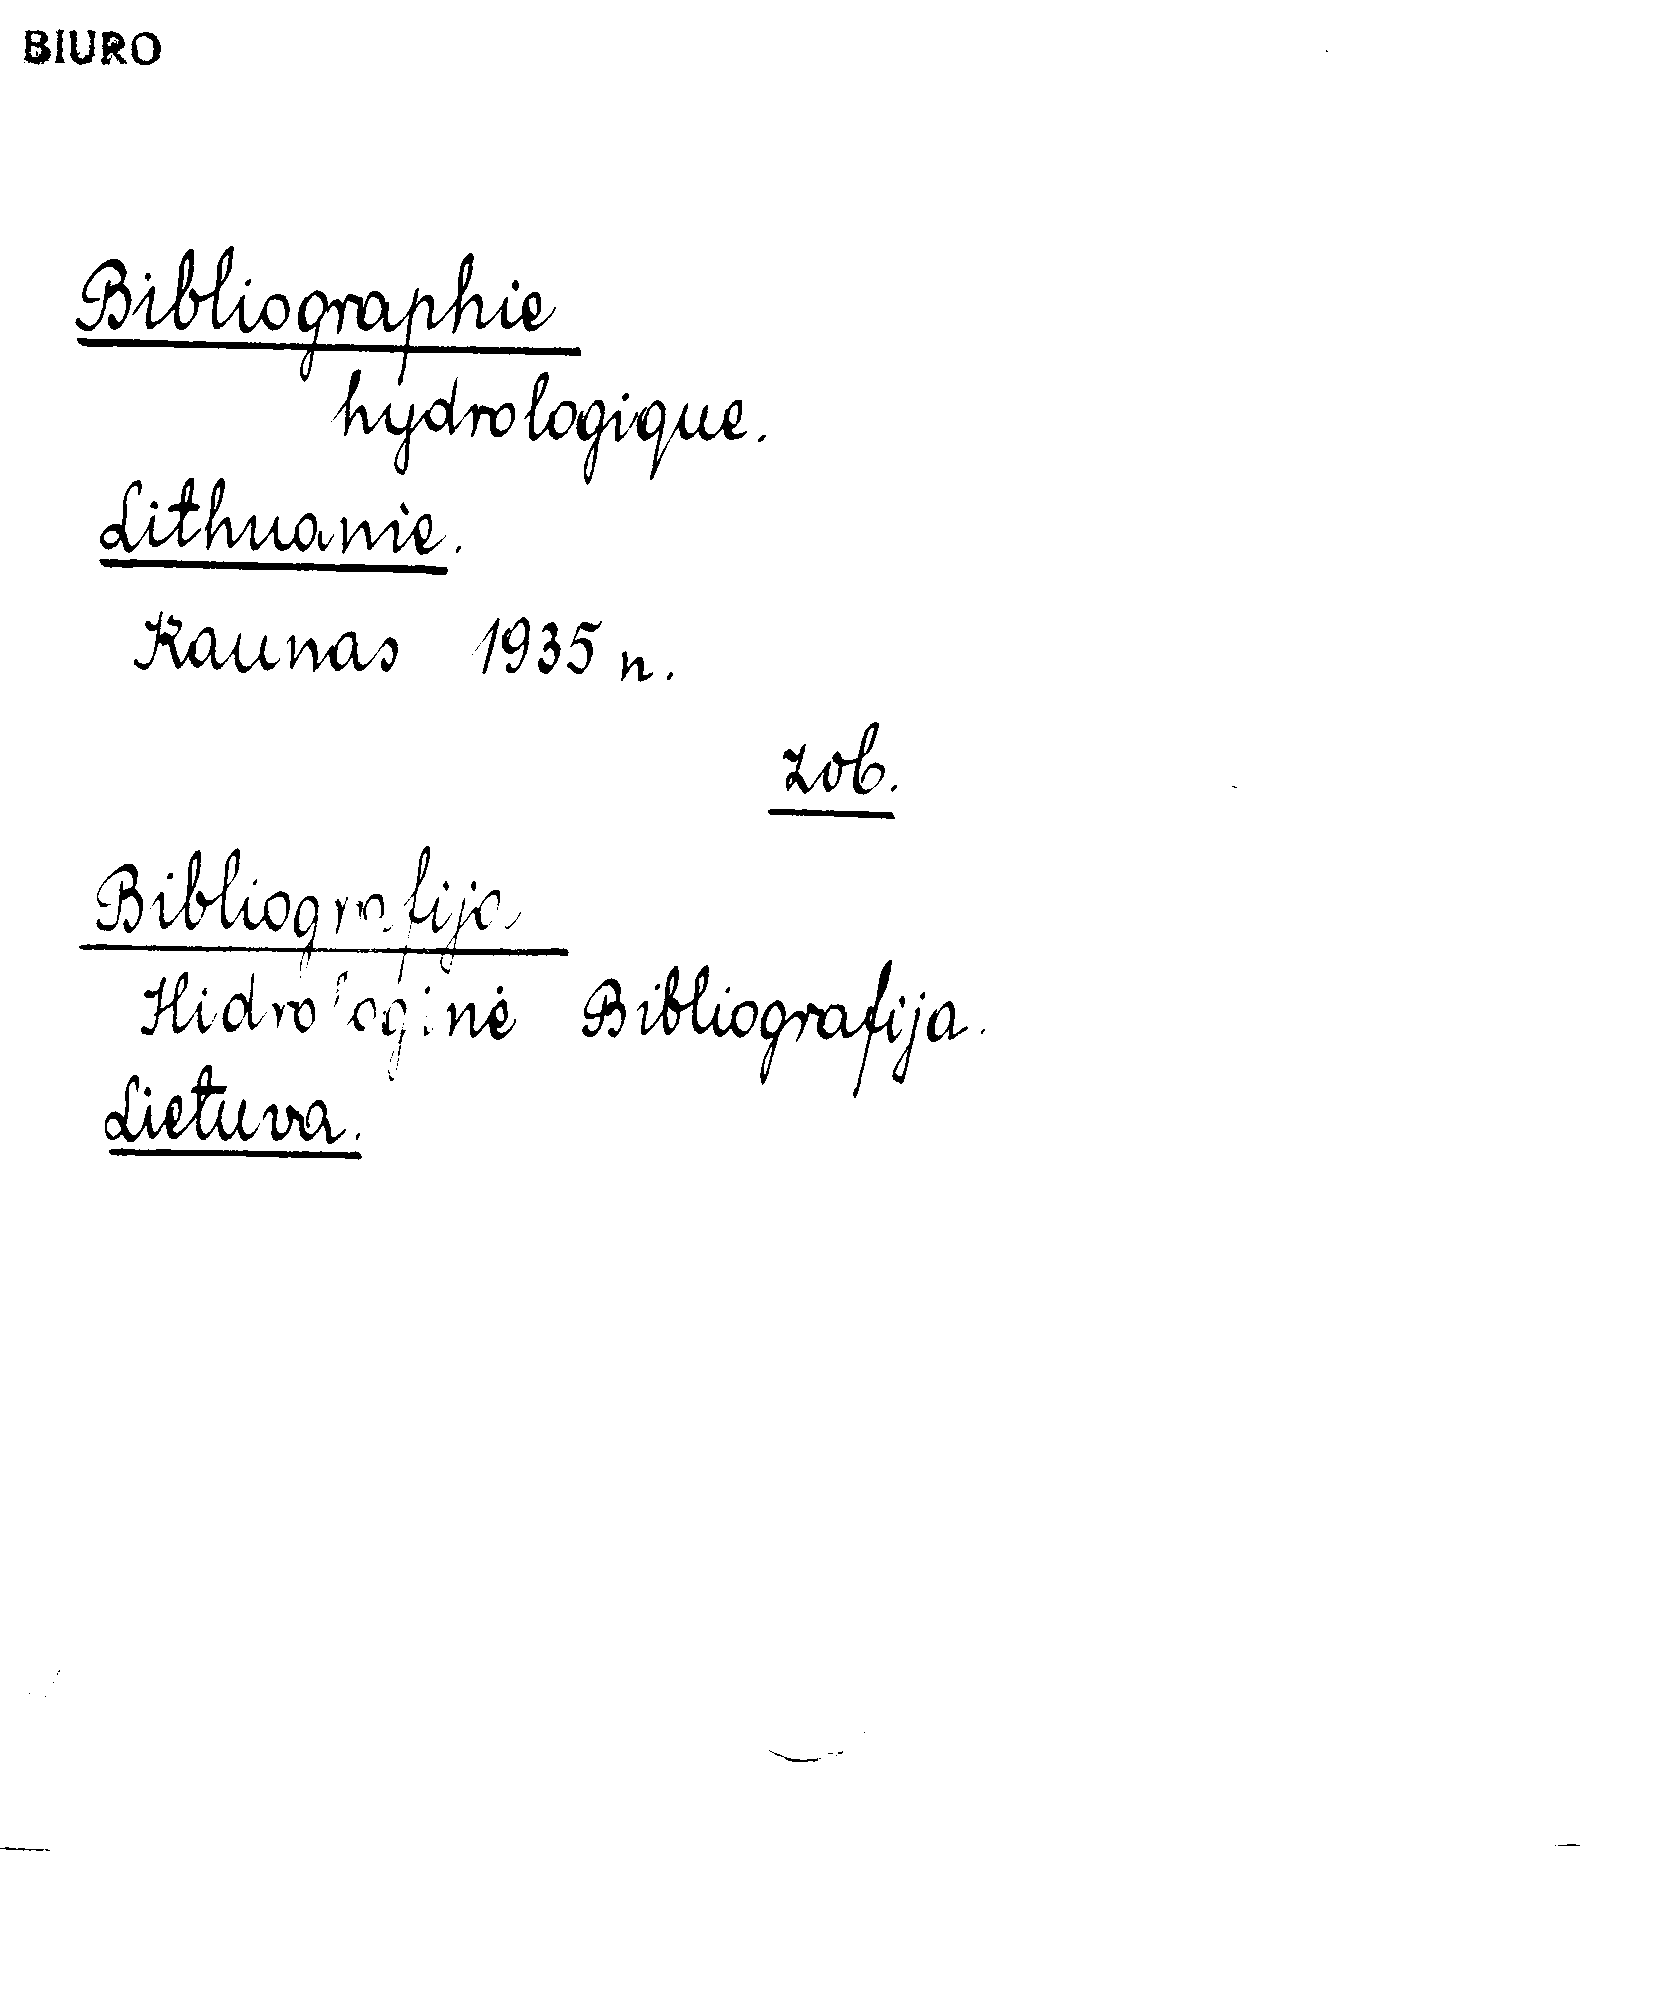 BIURO
Bibliographie
hydrologique.
Lithuanie.
Kaunas 1935 n.
zob.
Bibliografija
Hidrologinė Bibliografija.
Lietuva.